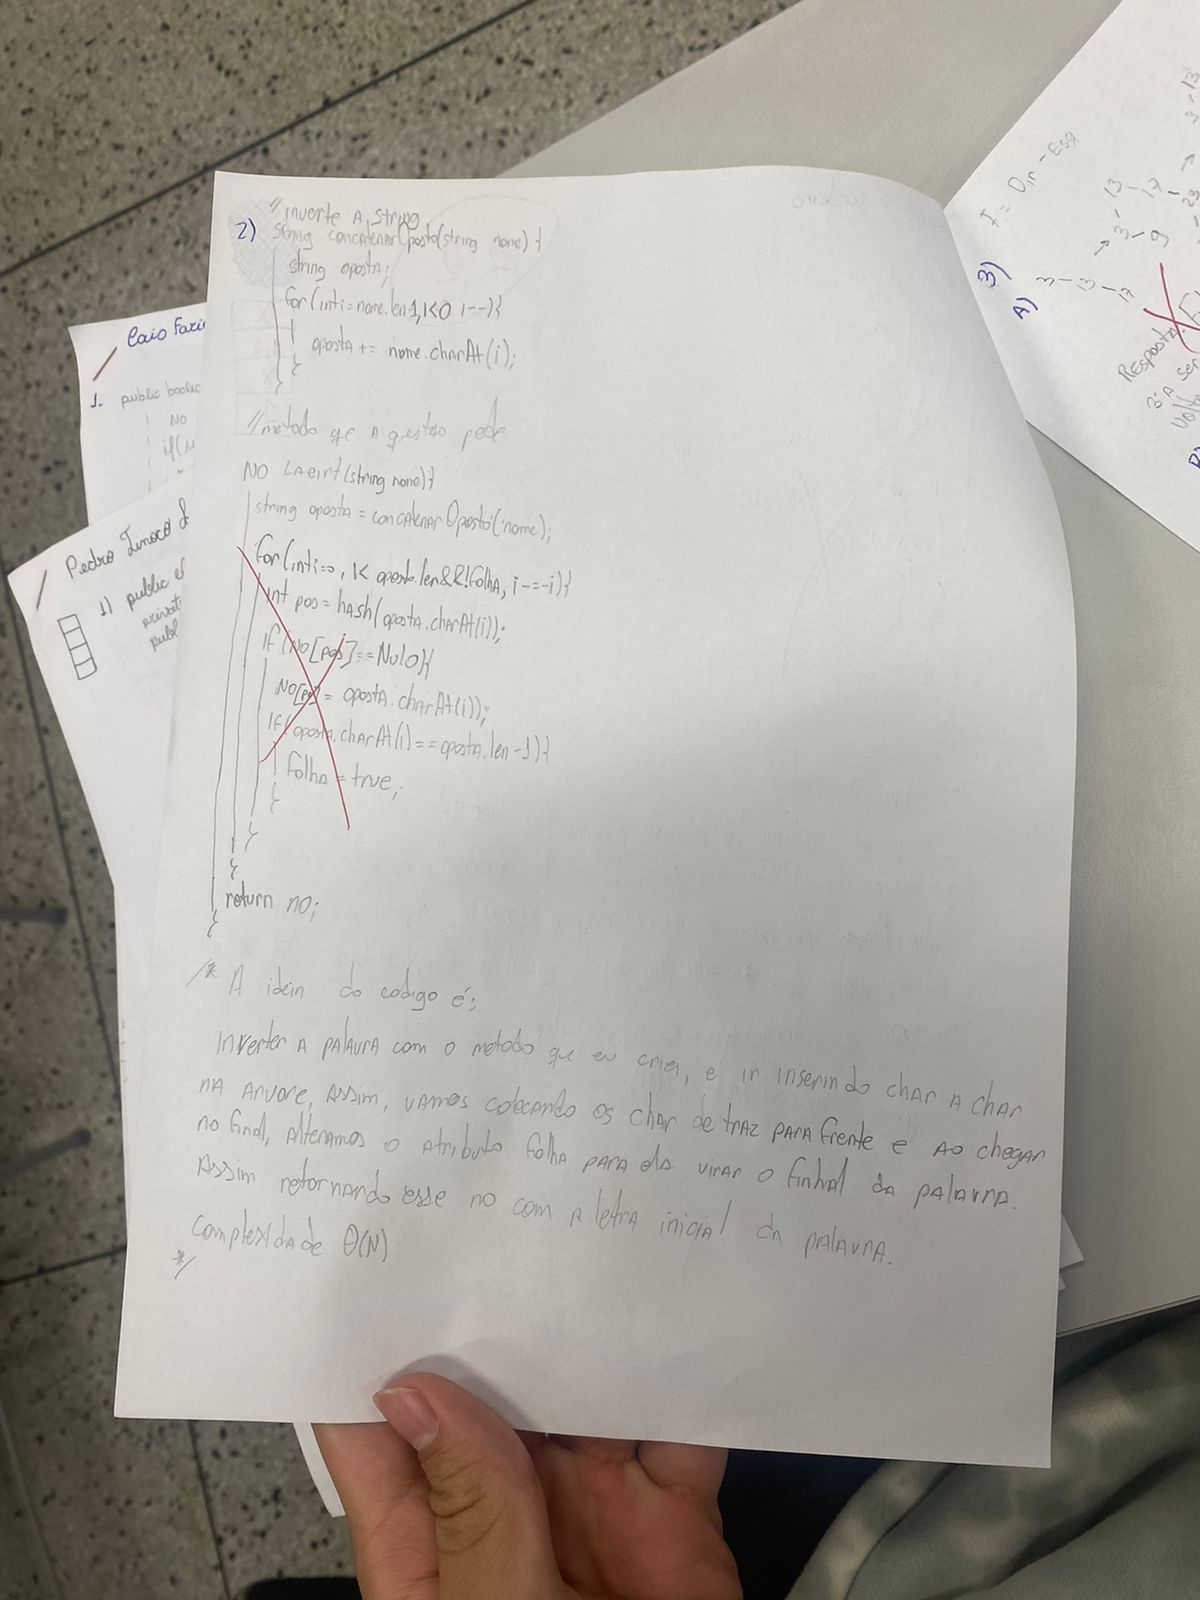 // inverte A string
2) string concatenarOposto(string nome) {
string oposta;
for(int i=nome.len-1, i<0 i--){
oposta += nome.charAt(i);
}
}
// metodo que a questão pede
NO LAEInt(string nome){
string oposta = concatenarOposto(nome);
for(int i=0, i< oposta.len&&!folhA, i-=-i){
int pos = hAsh(oposta.charAt(i));
if (NO[pos]==Nulo){
NO[pos]= oposta.charAt(i));
if(oposta.charAt(i)==oposta.len-1){
folhA = true;
}
}
}
return no;
}
/* A ideia do codigo é:
Inverter A pALAvrA com o metodo que eu criei, e ir inserindo char A char
nA Arvore, Assim, vAmos colocAndo os char de trAz pArA frente e Ao chegAr
no final, AlterAmos o Atributo folhA pArA elA virAr o finhal dA pALAvrA.
Assim retornAndo esse no com A letrA iniciAl dA pALAvrA.
complexidAde Θ(N)
*/
Caio Fari
1. public boolea
NO
if(
Pedro
1) public
privat
publ
3)
A)
I = Dir - Esq
3 - 13 - 17
→ 3 - 9
13 - 17 - 23
→ 3 - 13
Resposta:
3: A ser